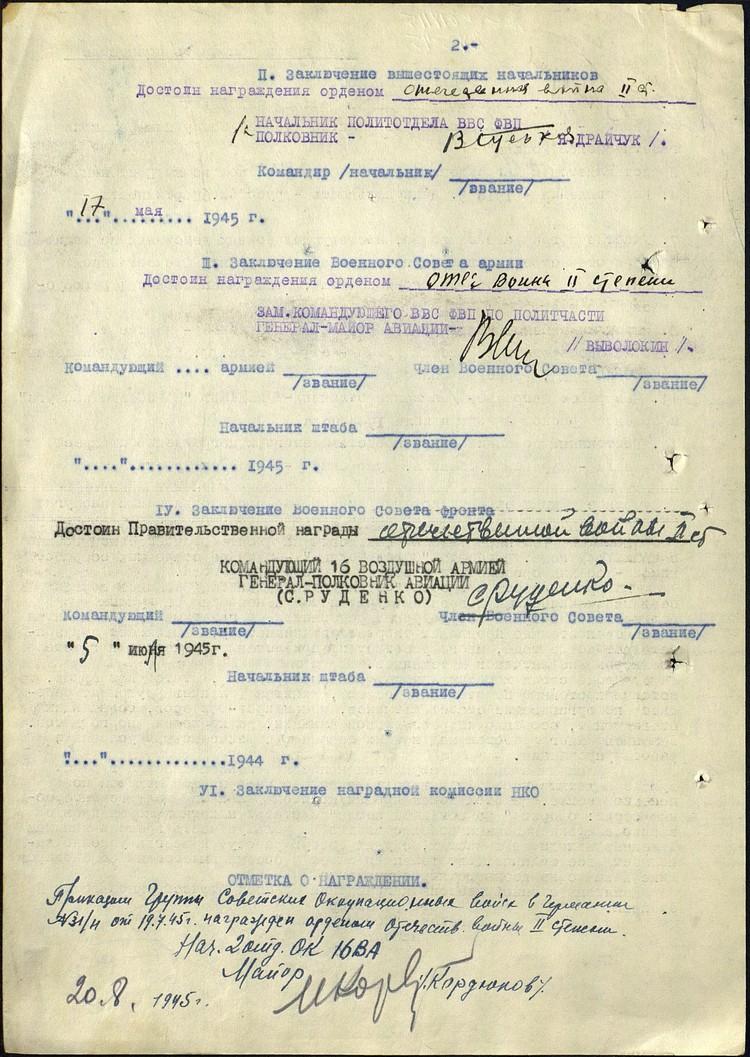 2.-
П. Заключение вышестоящих начальников
Достоин награждения орденом Отечественная война II ст.
НАЧАЛЬНИК ПОЛИТОТДЕЛА ВВС ФВП
ПОЛКОВНИК - ЯДРАЙЧУК /.
Командир /начальник/
/звание/
"17" мая 1945 г.
Ш. Заключение Военного Совета армии
Достоин награждения орденом Отеч война II степени
ЗАМ.КОМАНДУЮЩЕГО ВВС ФВП ПО ПОЛИТЧАСТИ
ГЕНЕРАЛ-МАЙОР АВИАЦИИ- // ВЫВОЛОКИН /.
Командующий .... армией Член Военного Совета
/звание/ /звание/
Начальник штаба
/звание/
"...."............ 1945 г.
IУ. Заключение Военного Совета фронта
Достоин Правительственной награды отечественной войны II ст
КОМАНДУЮЩИЙ 16 ВОЗДУШНОЙ АРМИЕЙ
ГЕНЕРАЛ-ПОЛКОВНИК АВИАЦИИ
(С.РУДЕНКО) С Руденко
Командующий Член Военного Совета
/звание/ /звание/
"5" июля 1945г.
Начальник штаба
/звание/
"...".............1944 г.
УI. Заключение наградной комиссии НКО
ОТМЕТКА О НАГРАЖДЕНИИ.
Приказом Группы Советских Окупационных войск в Германии
№31/н от 19.7.45г. награжден орденом Отечеств. войны II степени.
Нач. 2 отд. ОК 16ВА
Майор /Кордюков/.
20.8. 1945г.